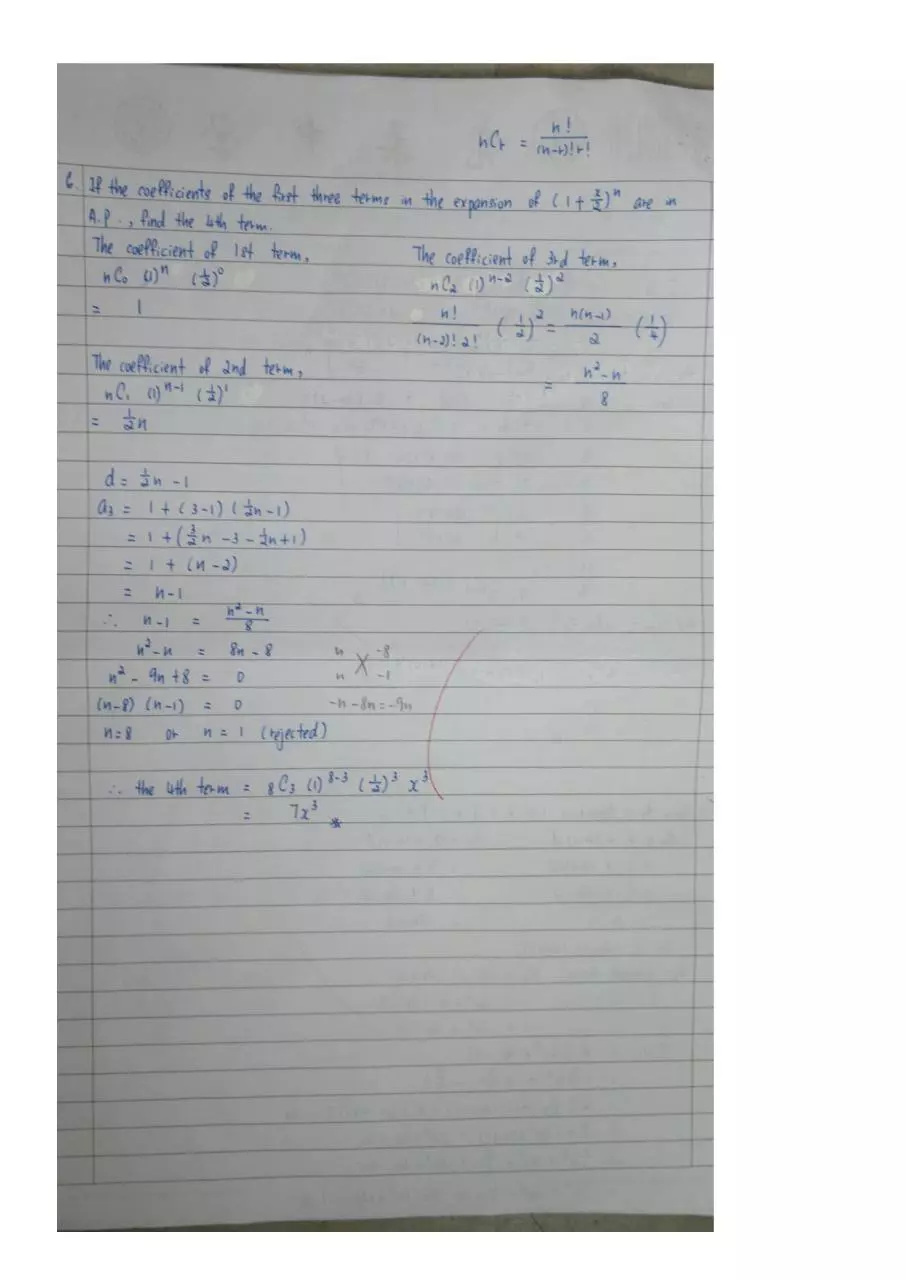 nCr = n!/(n-r)!r!
6. If the coefficients of the first three terms in the expansion of (1 + x/2)^n are in
A.P., find the 4th term.
The coefficient of 1st term,
nC₀ (1)^n (1/2)^0
= 1
The coefficient of 2nd term,
nC₁ (1)^n-1 (1/2)^1
= 1/2n
The coefficient of 3rd term,
nC₂ (1)^n-2 (1/2)^2
n!/(n-2)!2! (1/2)^2 = n(n-1)/2 (1/4)
= n²-n/8
d = 1/2n - 1
a₃ = 1 + (3-1) (1/2n-1)
= 1 + (3/2n - 3 - 1/2n + 1)
= 1 + (n-2)
= n-1
∴ n-1 = n²-n/8
n²-n = 8n - 8
n² - 9n + 8 = 0
(n-8) (n-1) = 0
n=8 or n = 1 (rejected)
n -8
n -1
-n - 8n = -9n
∴ the 4th term = 8C₃ (1)^8-3 (1/2)^3 x³
= 7x³ *